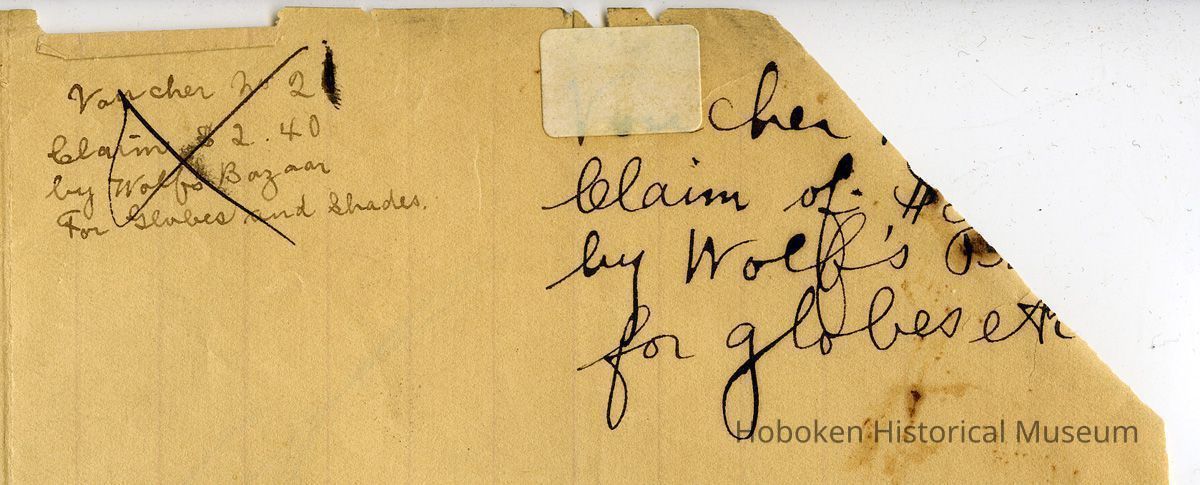 Voucher No 21
Claim $2.40
by Wolfs Bazaar
For Globes and Shades.
cher
Claim of $
by Wolf's
for globes etc
Hoboken Historical Museum